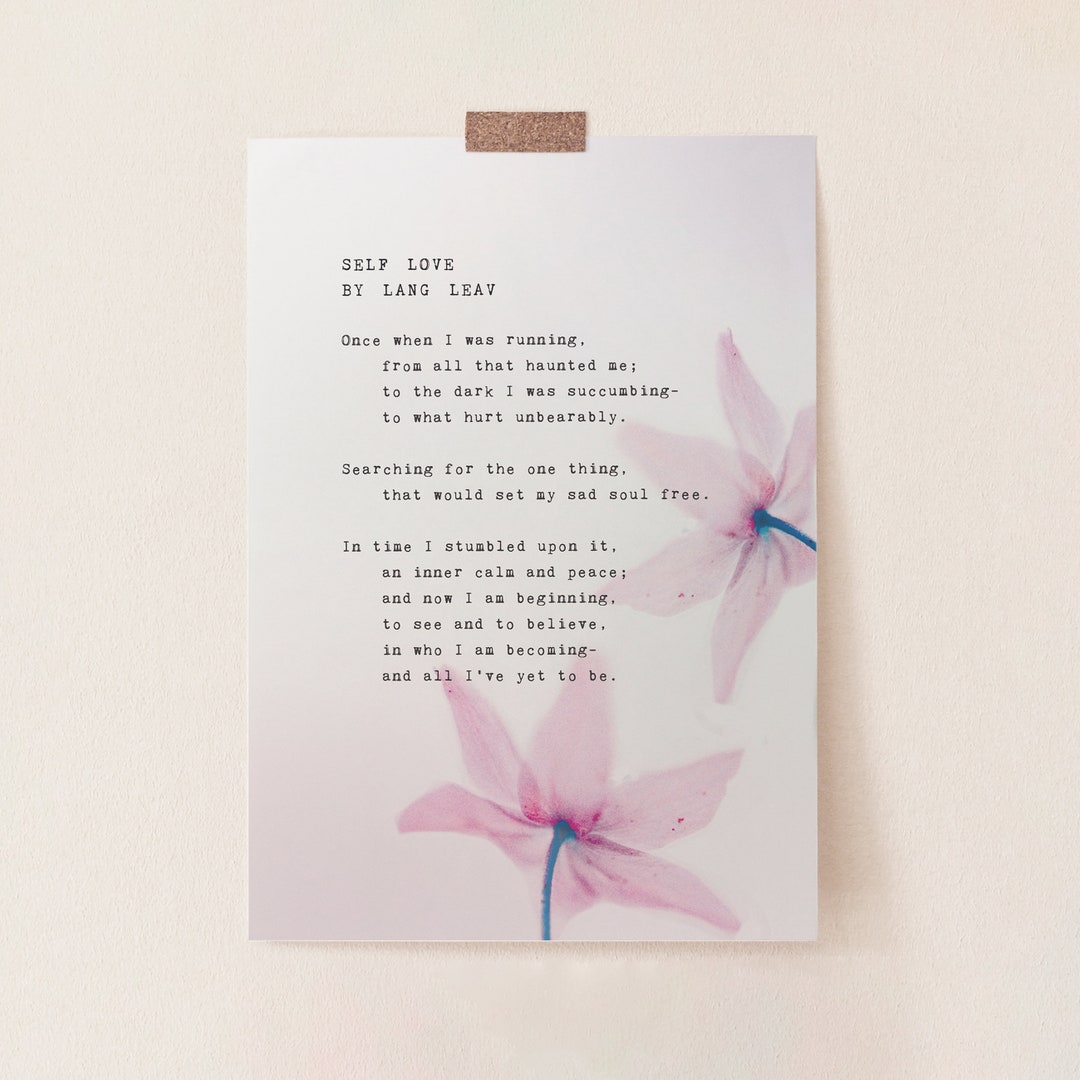 SELF LOVE
BY LANG LEAV
Once when I was running,
from all that haunted me;
to the dark I was succumbing-
to what hurt unbearably.
Searching for the one thing,
that would set my sad soul free.
In time I stumbled upon it,
an inner calm and peace;
and now I am beginning,
to see and to believe,
in who I am becoming-
and all I've yet to be.